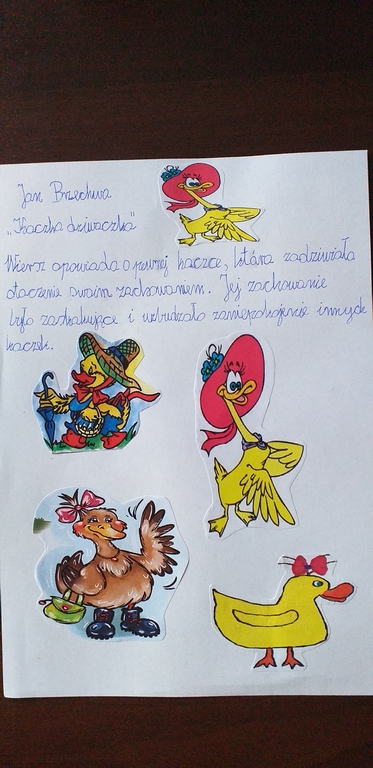 Jan Brzechwa
„Kaczka dziwaczka"
Wiersz opowiada o pewnej kaczce, która zadziwiała
otoczenie swoim zachowaniem. Jej zachowanie
było zaskakujące i wzbudzało zaniepokojenie innych
kaczek.